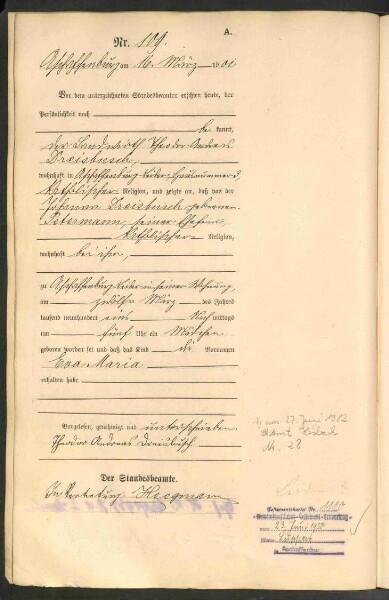 A.
Nr. 109.
Aschaffenburg am 16. März 1901
Vor dem unterzeichneten Standesbeamten erschien heute, der
Persönlichkeit nach
be kannt,
der Landwirth Theodor Andreas
Dreisbusch,
wohnhaft in Aschaffenburg-Leider, Hausnummer
katholischer Religion, und zeigte an, daß von der
Johanna Dreisbusch geborenen
Petermann, seiner Ehefrau
katholischer Religion,
wohnhaft bei ihm,
zu Aschaffenburg-Leider in seiner Wohnung
am zwölften März des Jahres
tausend neunhundert eins Nachmittags
um fünf Uhr ein Mädchen
geboren worden sei und daß das Kind die Vornamen
Eva Maria
erhalten habe
Vorgelesen, genehmigt und unterschrieben
Theodor Andreas Dreisbusch
Der Standesbeamte.
In Vertretung
27. Juni 1912
Nr. 28
23. Juni
Aschaffenburg